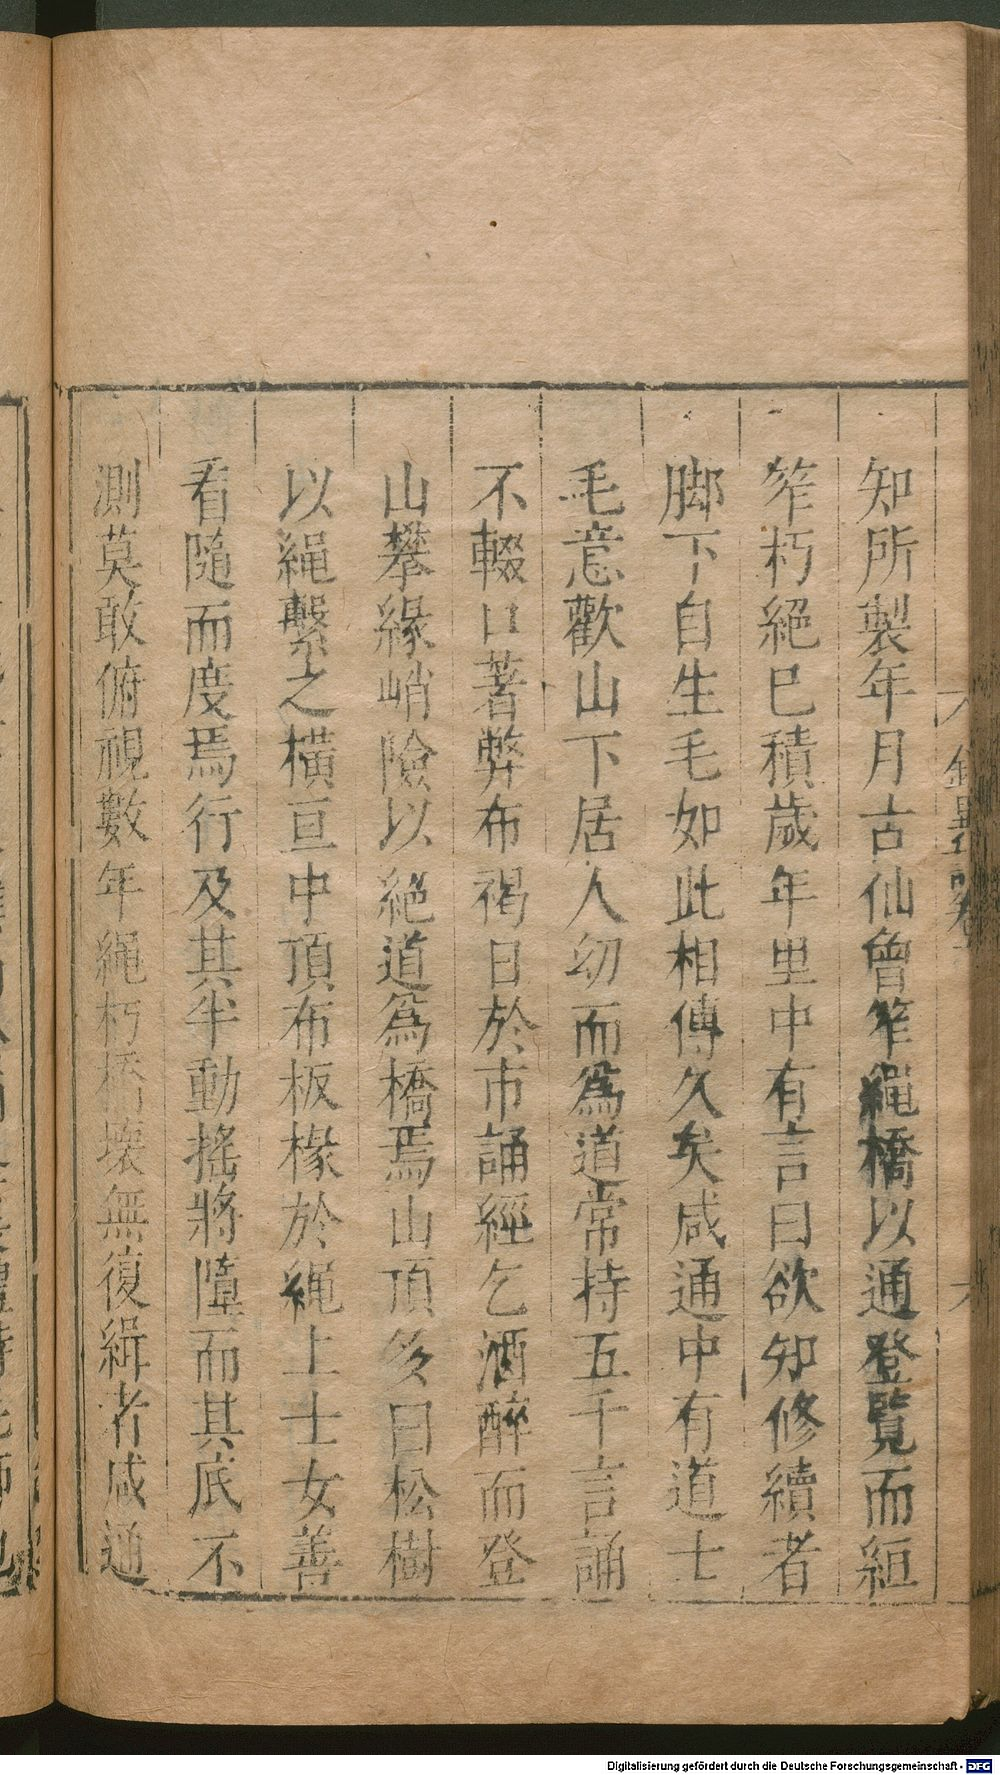 知所製年月古仙曾笮繩橋以通登覽而絙
笮朽絕巳積歲年里中有言曰欲知修續者
脚下自生毛如此相傳久矣咸通中有道士
毛意歡山下居人幼而爲道常持五千言誦
不輟口著弊布褐日於市誦經乞酒醉而登
山攀緣峭險以絕道爲橋焉山頂多曰松樹
以繩繫之橫亘中頂布板椽於繩上士女善
看隨而度焉行及其半動搖將墮而其底不
測莫敢俯視數年繩朽橋壞無復緝者咸通
Digitalisierung gefördert durch die Deutsche Forschungsgemeinschaft - DFG